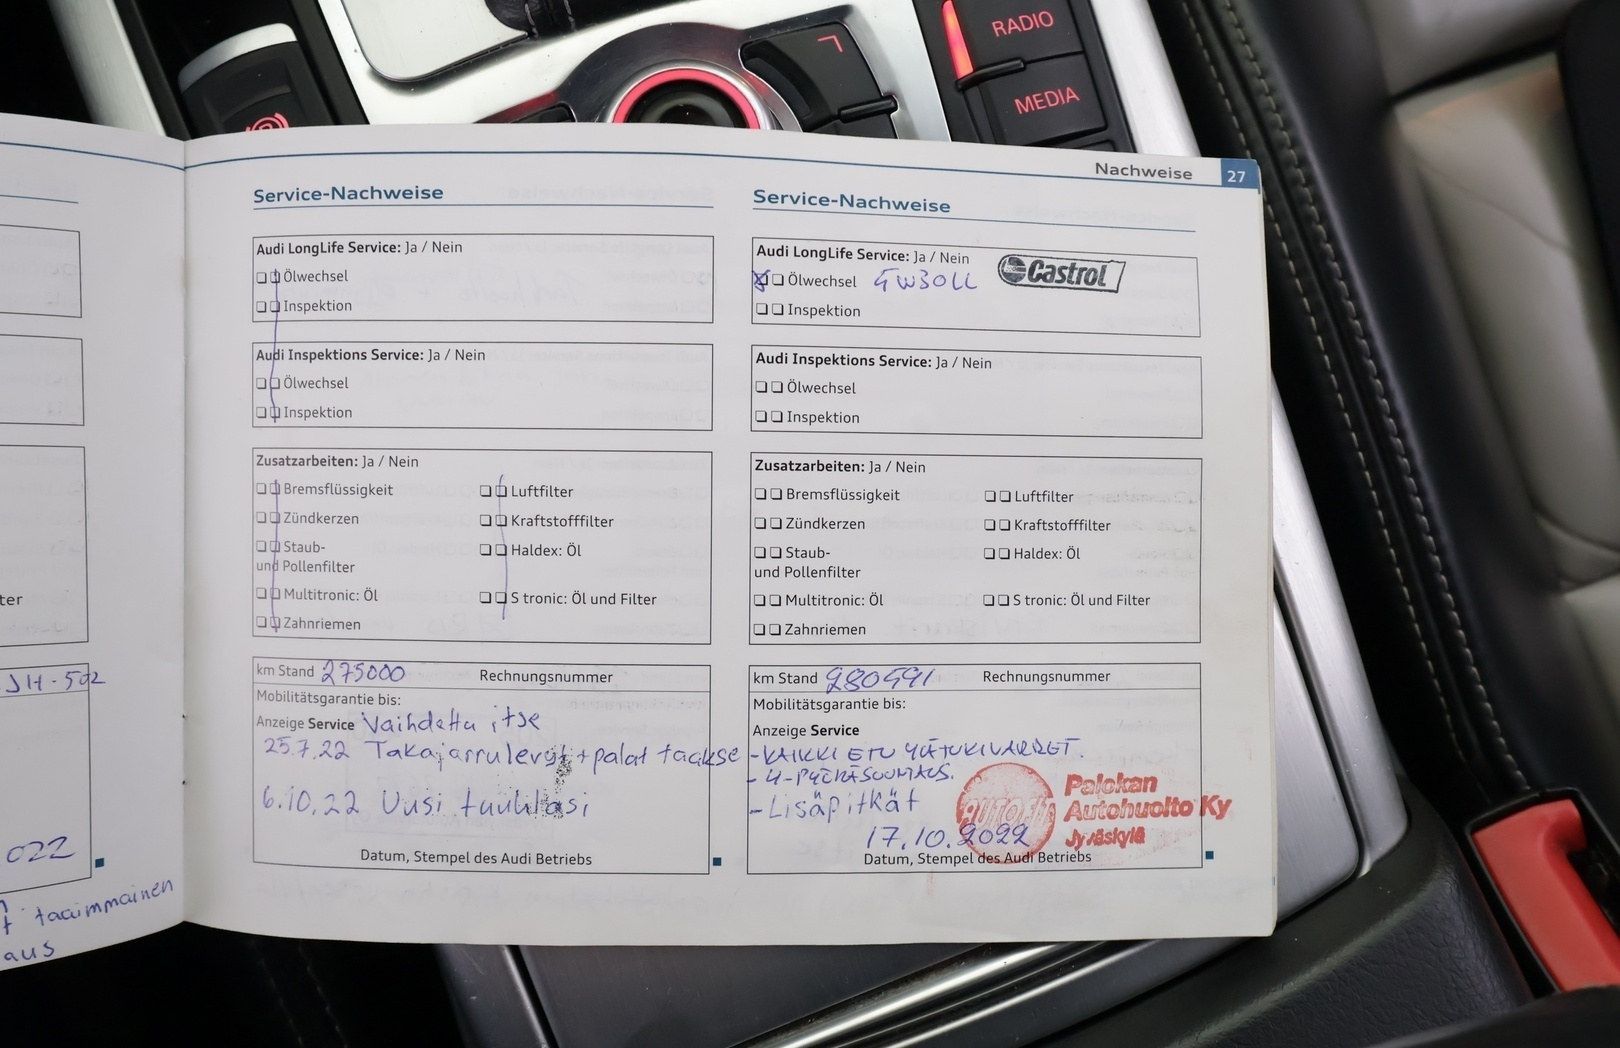 RADIO
MEDIA
Nachweise 27
Service-Nachweise
Audi LongLife Service: Ja / Nein
Ölwechsel
Inspektion
Audi Inspektions Service: Ja / Nein
Ölwechsel
Inspektion
Zusatzarbeiten: Ja / Nein
Bremsflüssigkeit Luftfilter
Zündkerzen Kraftstofffilter
Staub- Haldex: Öl
und Pollenfilter
Multitronic: Öl S tronic: Öl und Filter
Zahnriemen
km Stand 275000 Rechnungsnummer
Mobilitätsgarantie bis:
Anzeige Service Vaihdettu itse
25.7.22 Takajarrulevyt + palat taakse
6.10.22 Uusi tuulilasi
Datum, Stempel des Audi Betriebs
Service-Nachweise
Audi LongLife Service: Ja / Nein
Castrol
Ölwechsel 5W30LL
Inspektion
Audi Inspektions Service: Ja / Nein
Ölwechsel
Inspektion
Zusatzarbeiten: Ja / Nein
Bremsflüssigkeit Luftfilter
Zündkerzen Kraftstofffilter
Staub- Haldex: Öl
und Pollenfilter
Multitronic: Öl S tronic: Öl und Filter
Zahnriemen
km Stand 280591 Rechnungsnummer
Mobilitätsgarantie bis:
Anzeige Service
- KAIKKI ETU YLÄTUKIVARRET.
- 4-PYÖRÄSUUNTAUS.
- Lisäpitkät
17.10.2022
Palokan
Autohuolto Ky
Jyväskylä
Datum, Stempel des Audi Betriebs
ter
JH-502
022
taaimmainen
aus